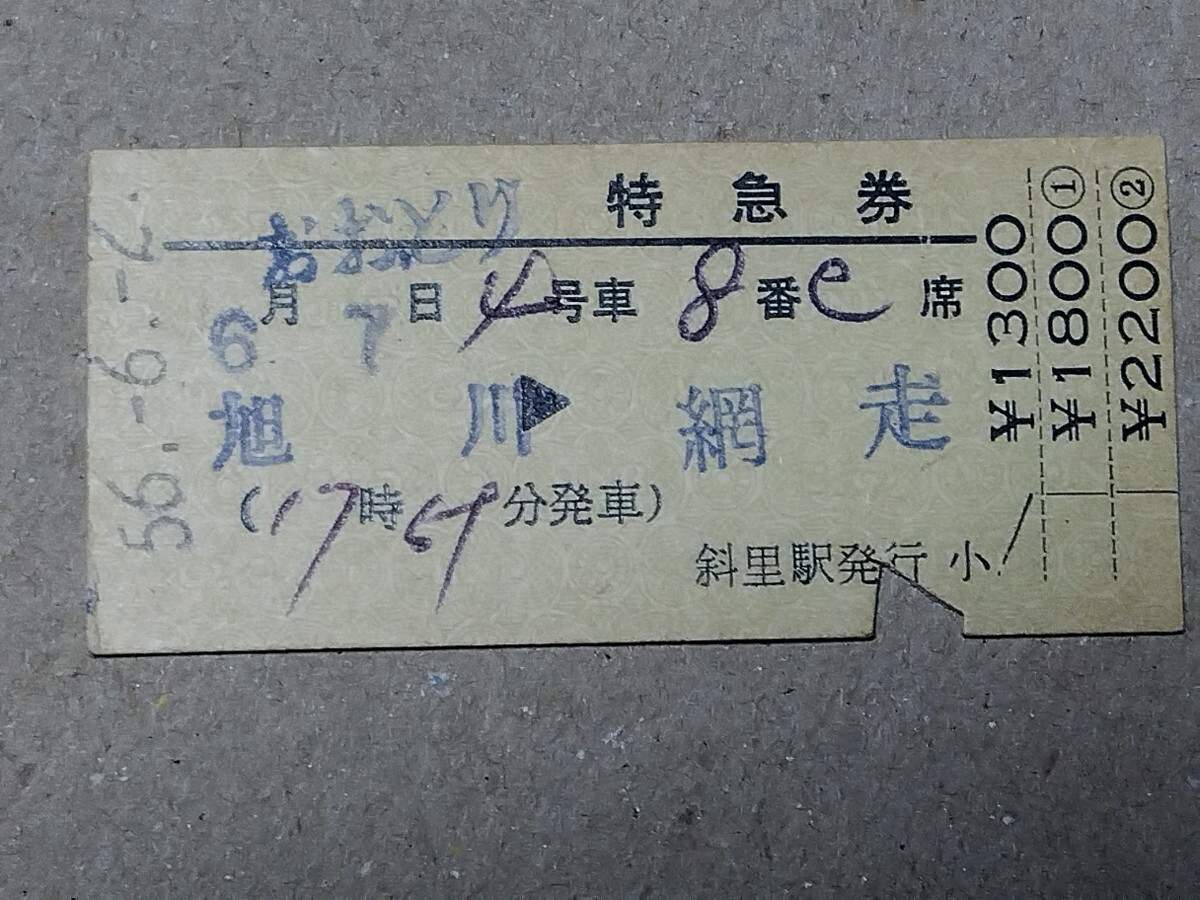 特急券
おおとり
6月7日4号車8番C席
旭川▶網走
(17時59分発車)
斜里駅発行 小
¥1300
¥1800①
¥2200②
56.-6.-2.